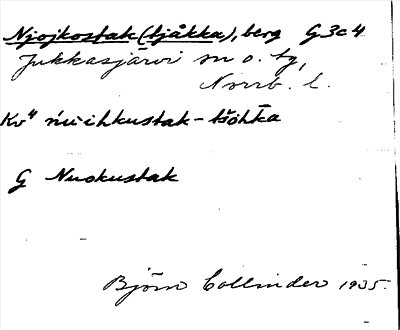 Njojkostak (tjåkka), berg G 3c4
Jukkasjärvi sn o. tg,
Norrb. l.
Kv⁴ ńuihkustak - tšohka
G Nuokustak
Björn Collinder 1935.